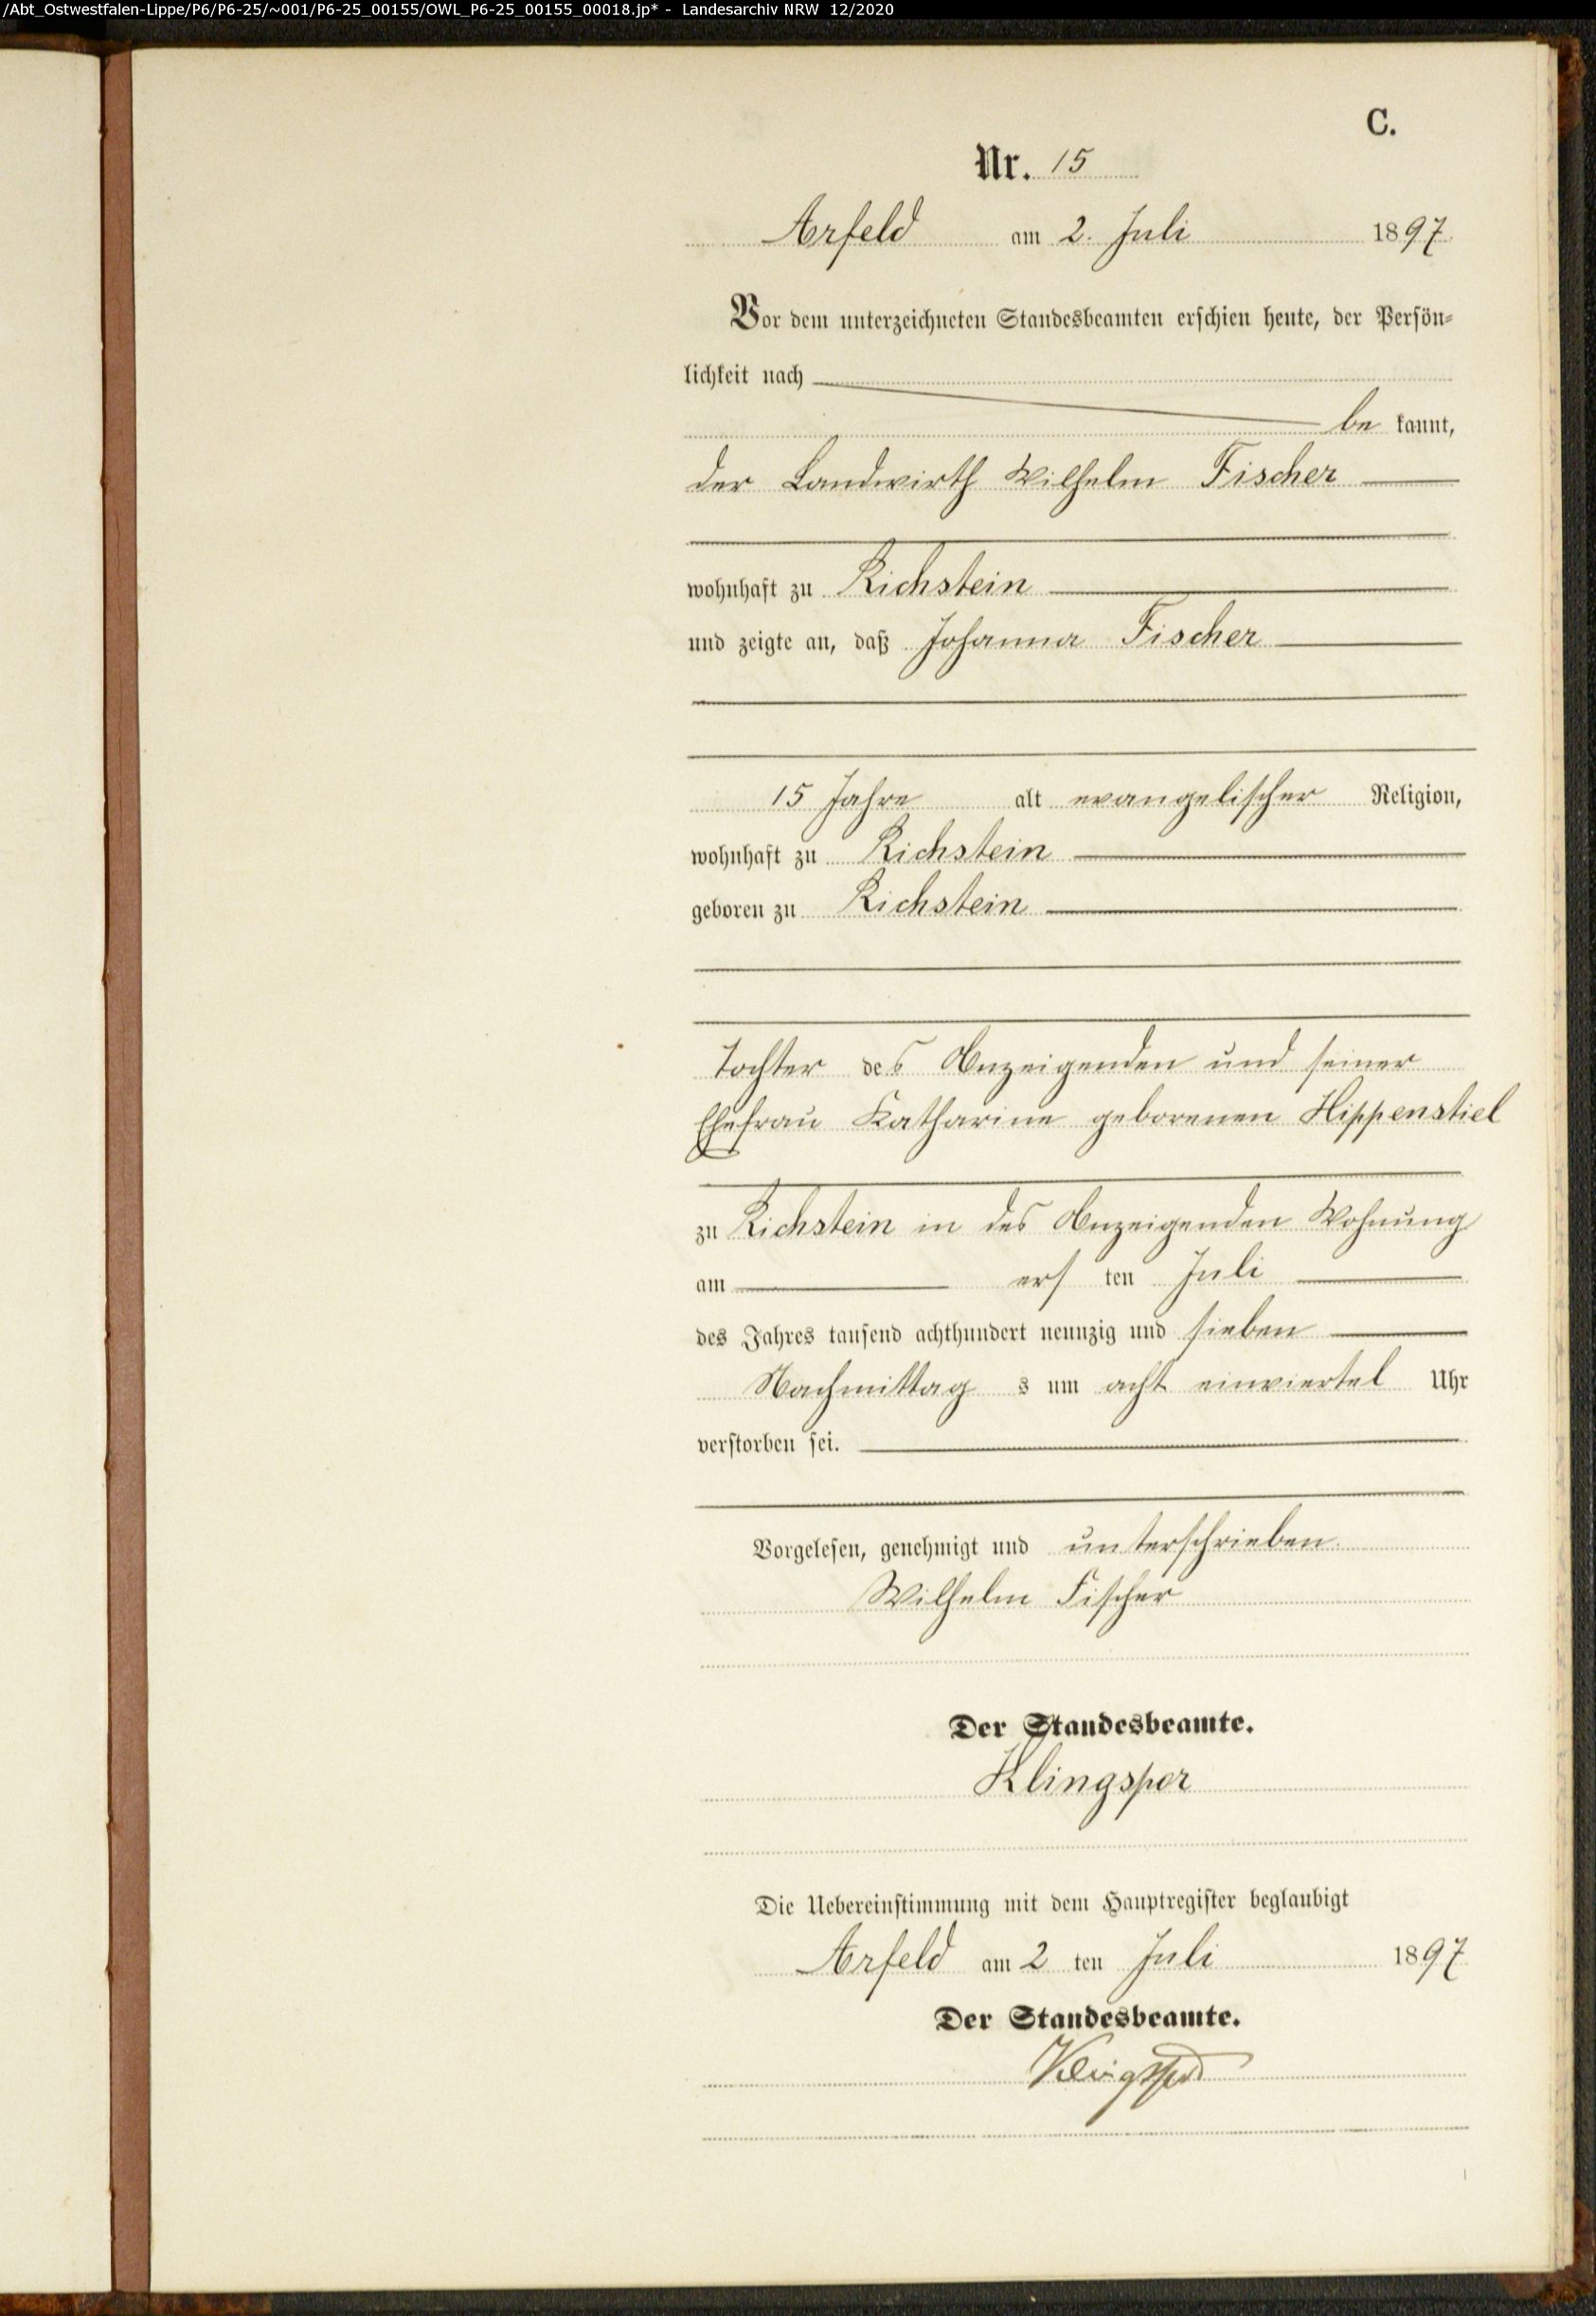 /Abt_Ostwestfalen-Lippe/P6/P6-25/~001/P6-25_00155/OWL_P6-25_00155_00018.jp* - Landesarchiv NRW 12/2020
C.
Nr. 15
Arfeld am 2. Juli 1897
Vor dem unterzeichneten Standesbeamten erschien heute, der Persön-
lichkeit nach
be kannt,
der Landwirth Wilhelm Fischer
wohnhaft zu Richstein
und zeigte an, daß Johanna Fischer
15 Jahre alt evangelischer Religion,
wohnhaft zu Richstein
geboren zu Richstein
Tochter des Anzeigenden und seiner
Ehefrau Katharine geborenen Hippenstiel
zu Richstein in des Anzeigenden Wohnung
am ers ten Juli
des Jahres tausend achthundert neunzig und sieben
Nachmittag s um acht einviertel Uhr
verstorben sei.
Vorgelesen, genehmigt und unterschrieben.
Wilhelm Fischer
Der Standesbeamte.
Klingspor
Die Uebereinstimmung mit dem Hauptregister beglaubigt
Arfeld am 2 ten Juli 1897
Der Standesbeamte.
Klingspor